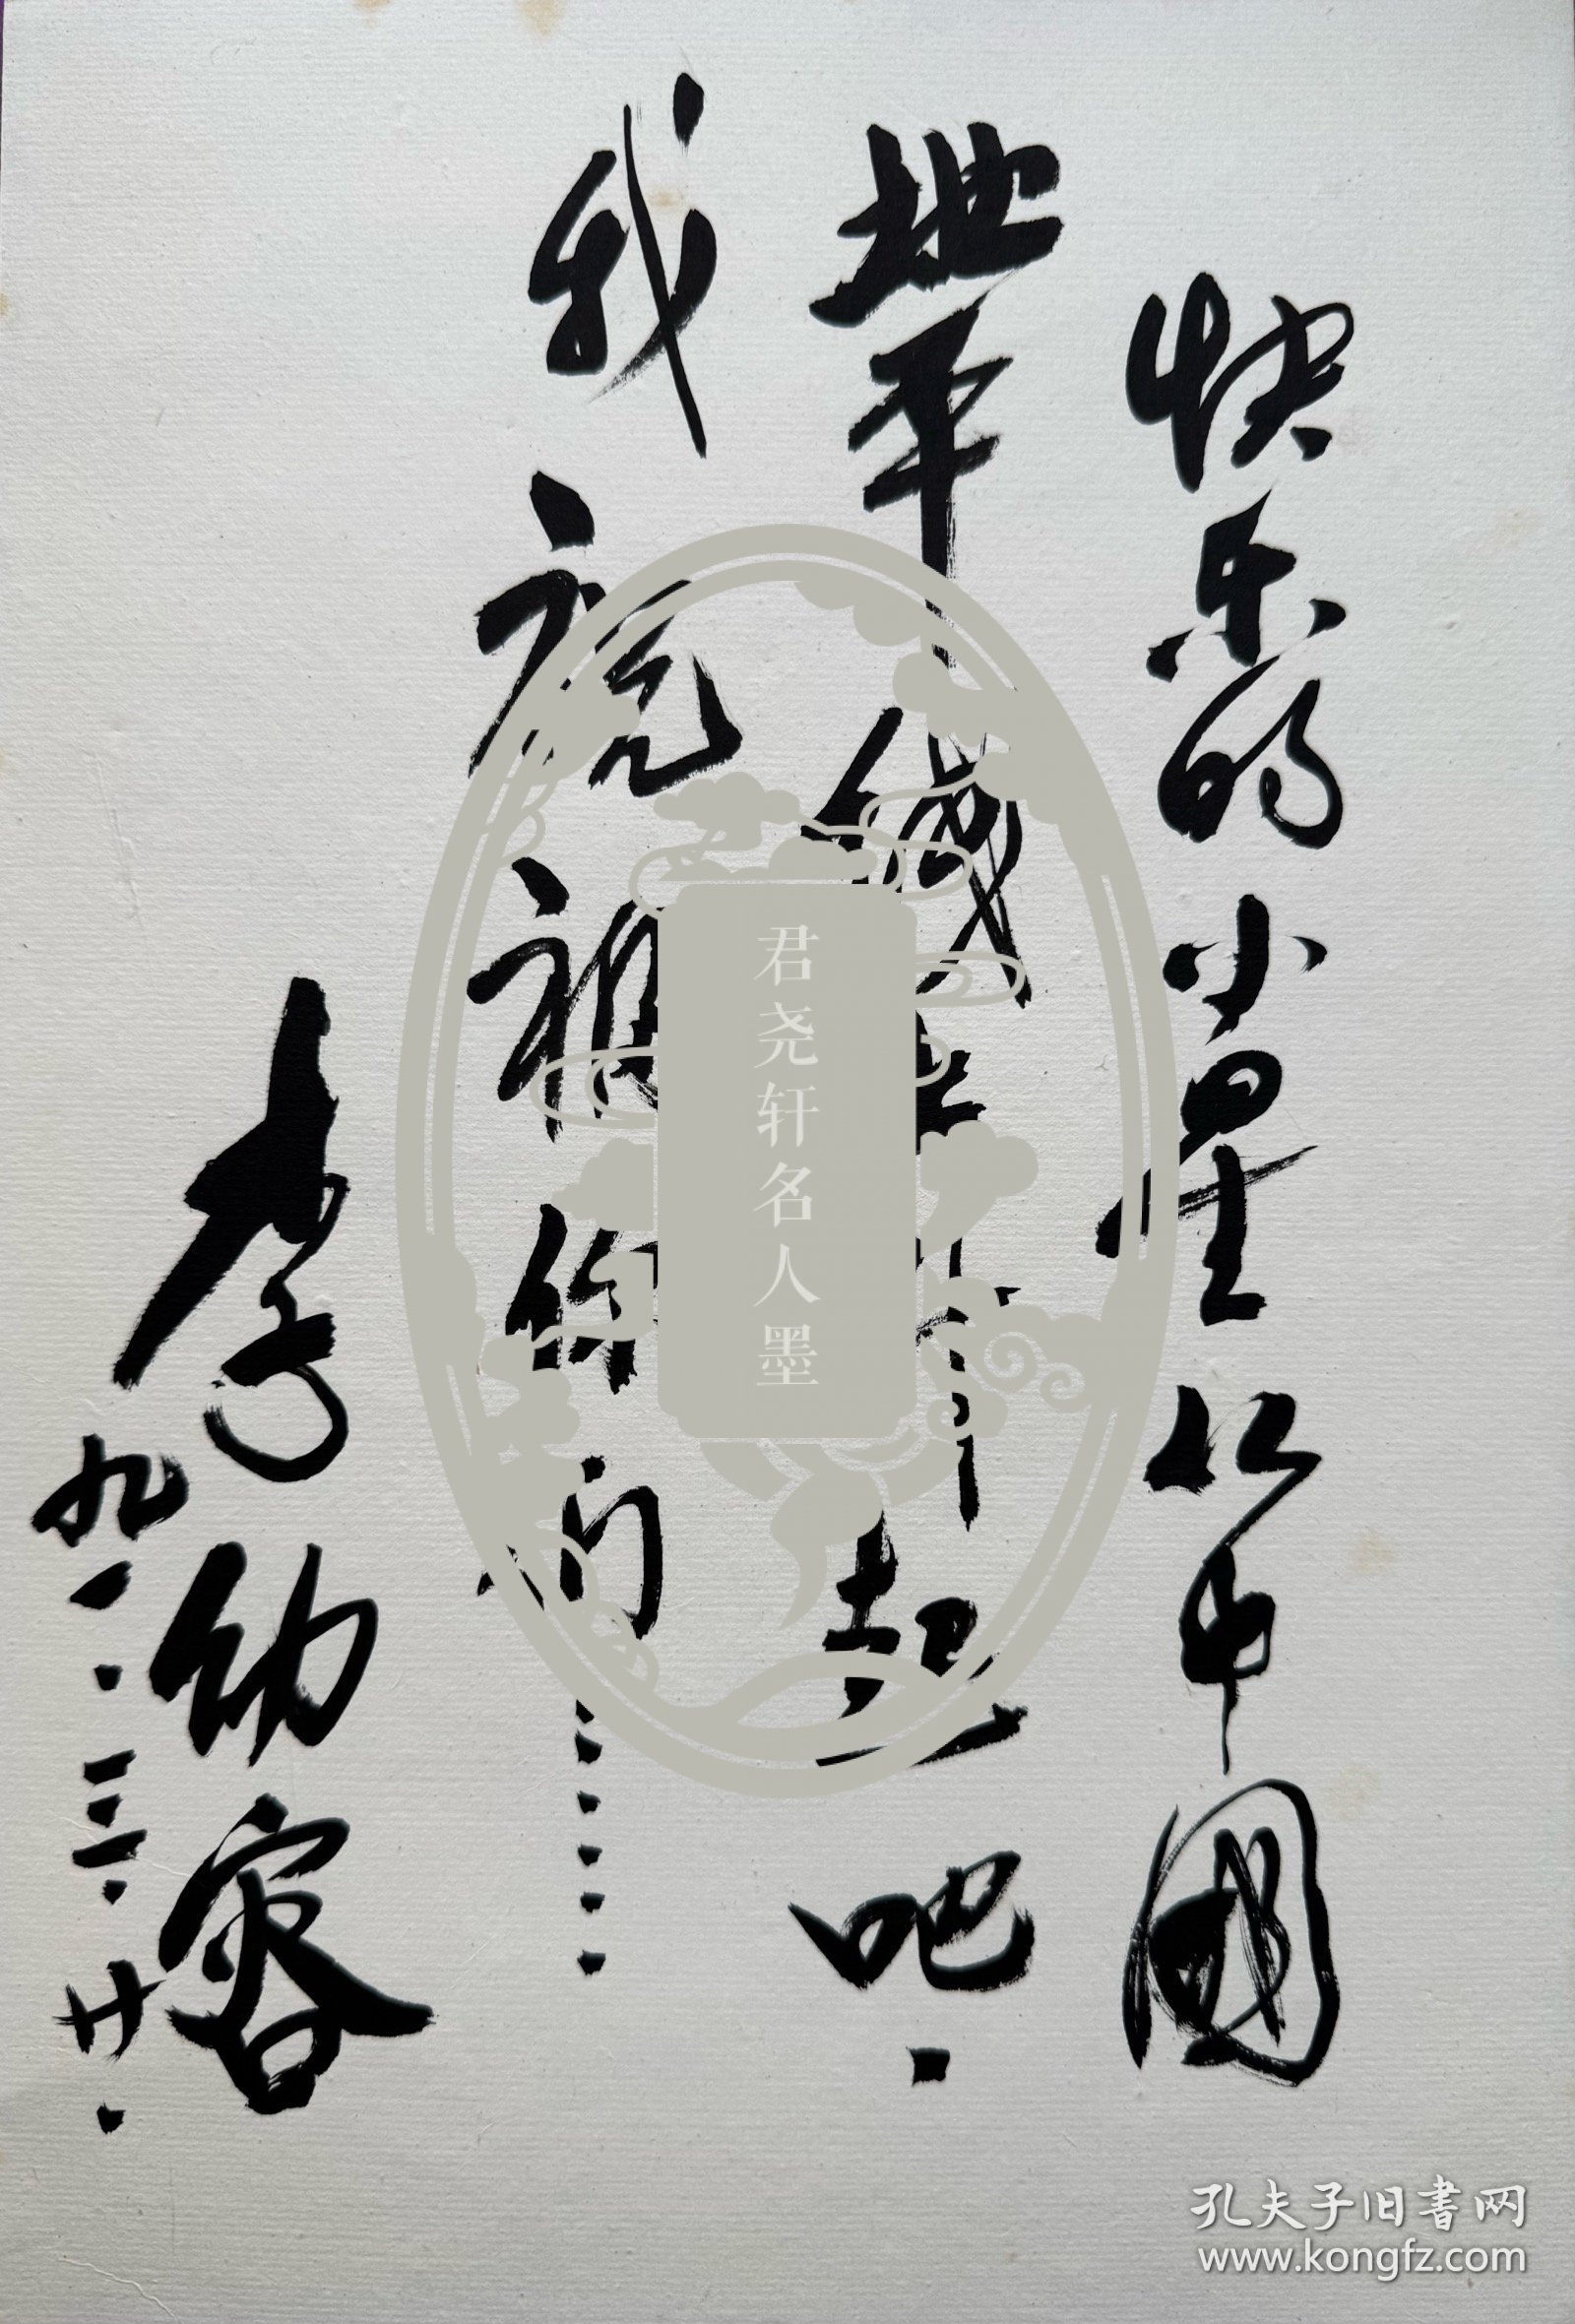 快乐的小星从中國
地平线上升起吧.
我祝福你们……
李幼容
九一.三.廿.
君尧轩名人墨
孔夫子旧書网
www.kongfz.com